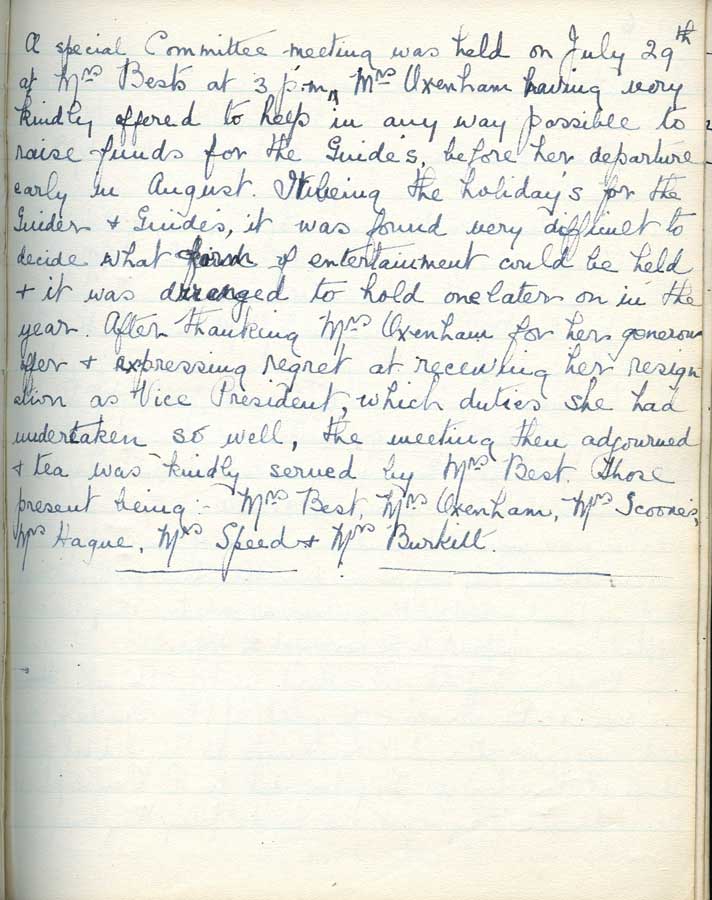 A special Committee meeting was held on July 29th
at Mrs Bests at 3 p.m, Mrs Oxenham having very
kindly offered to help in any way possible to
raise funds for the Guide's, before her departure
early in August. It being the holiday's for the
Guider & Guide's, it was found very difficult to
decide what form of entertainment could be held
& it was arranged to hold one later on in the
year. After thanking Mrs Oxenham for her generous
offer & expressing regret at receiving her resign
ation as Vice President, which duties she had
undertaken so well, the meeting then adjourned
& tea was kindly served by Mrs Best. Those
present being:- Mrs Best, Mrs Oxenham, Mrs Scoones,
Mrs Hague, Mrs Speed & Mrs Burkill.